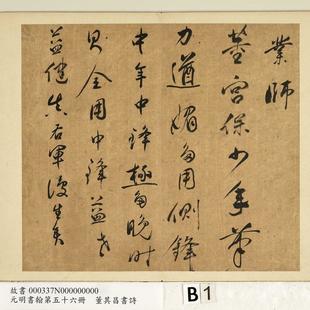 業師
董宮保少年筆
力遒媚多用側鋒
中年中鋒極多晚時
則全用中鋒益老
益健真右軍復生矣
故書 000337N000000000
元明書翰第五十六冊 董其昌書詩
B1